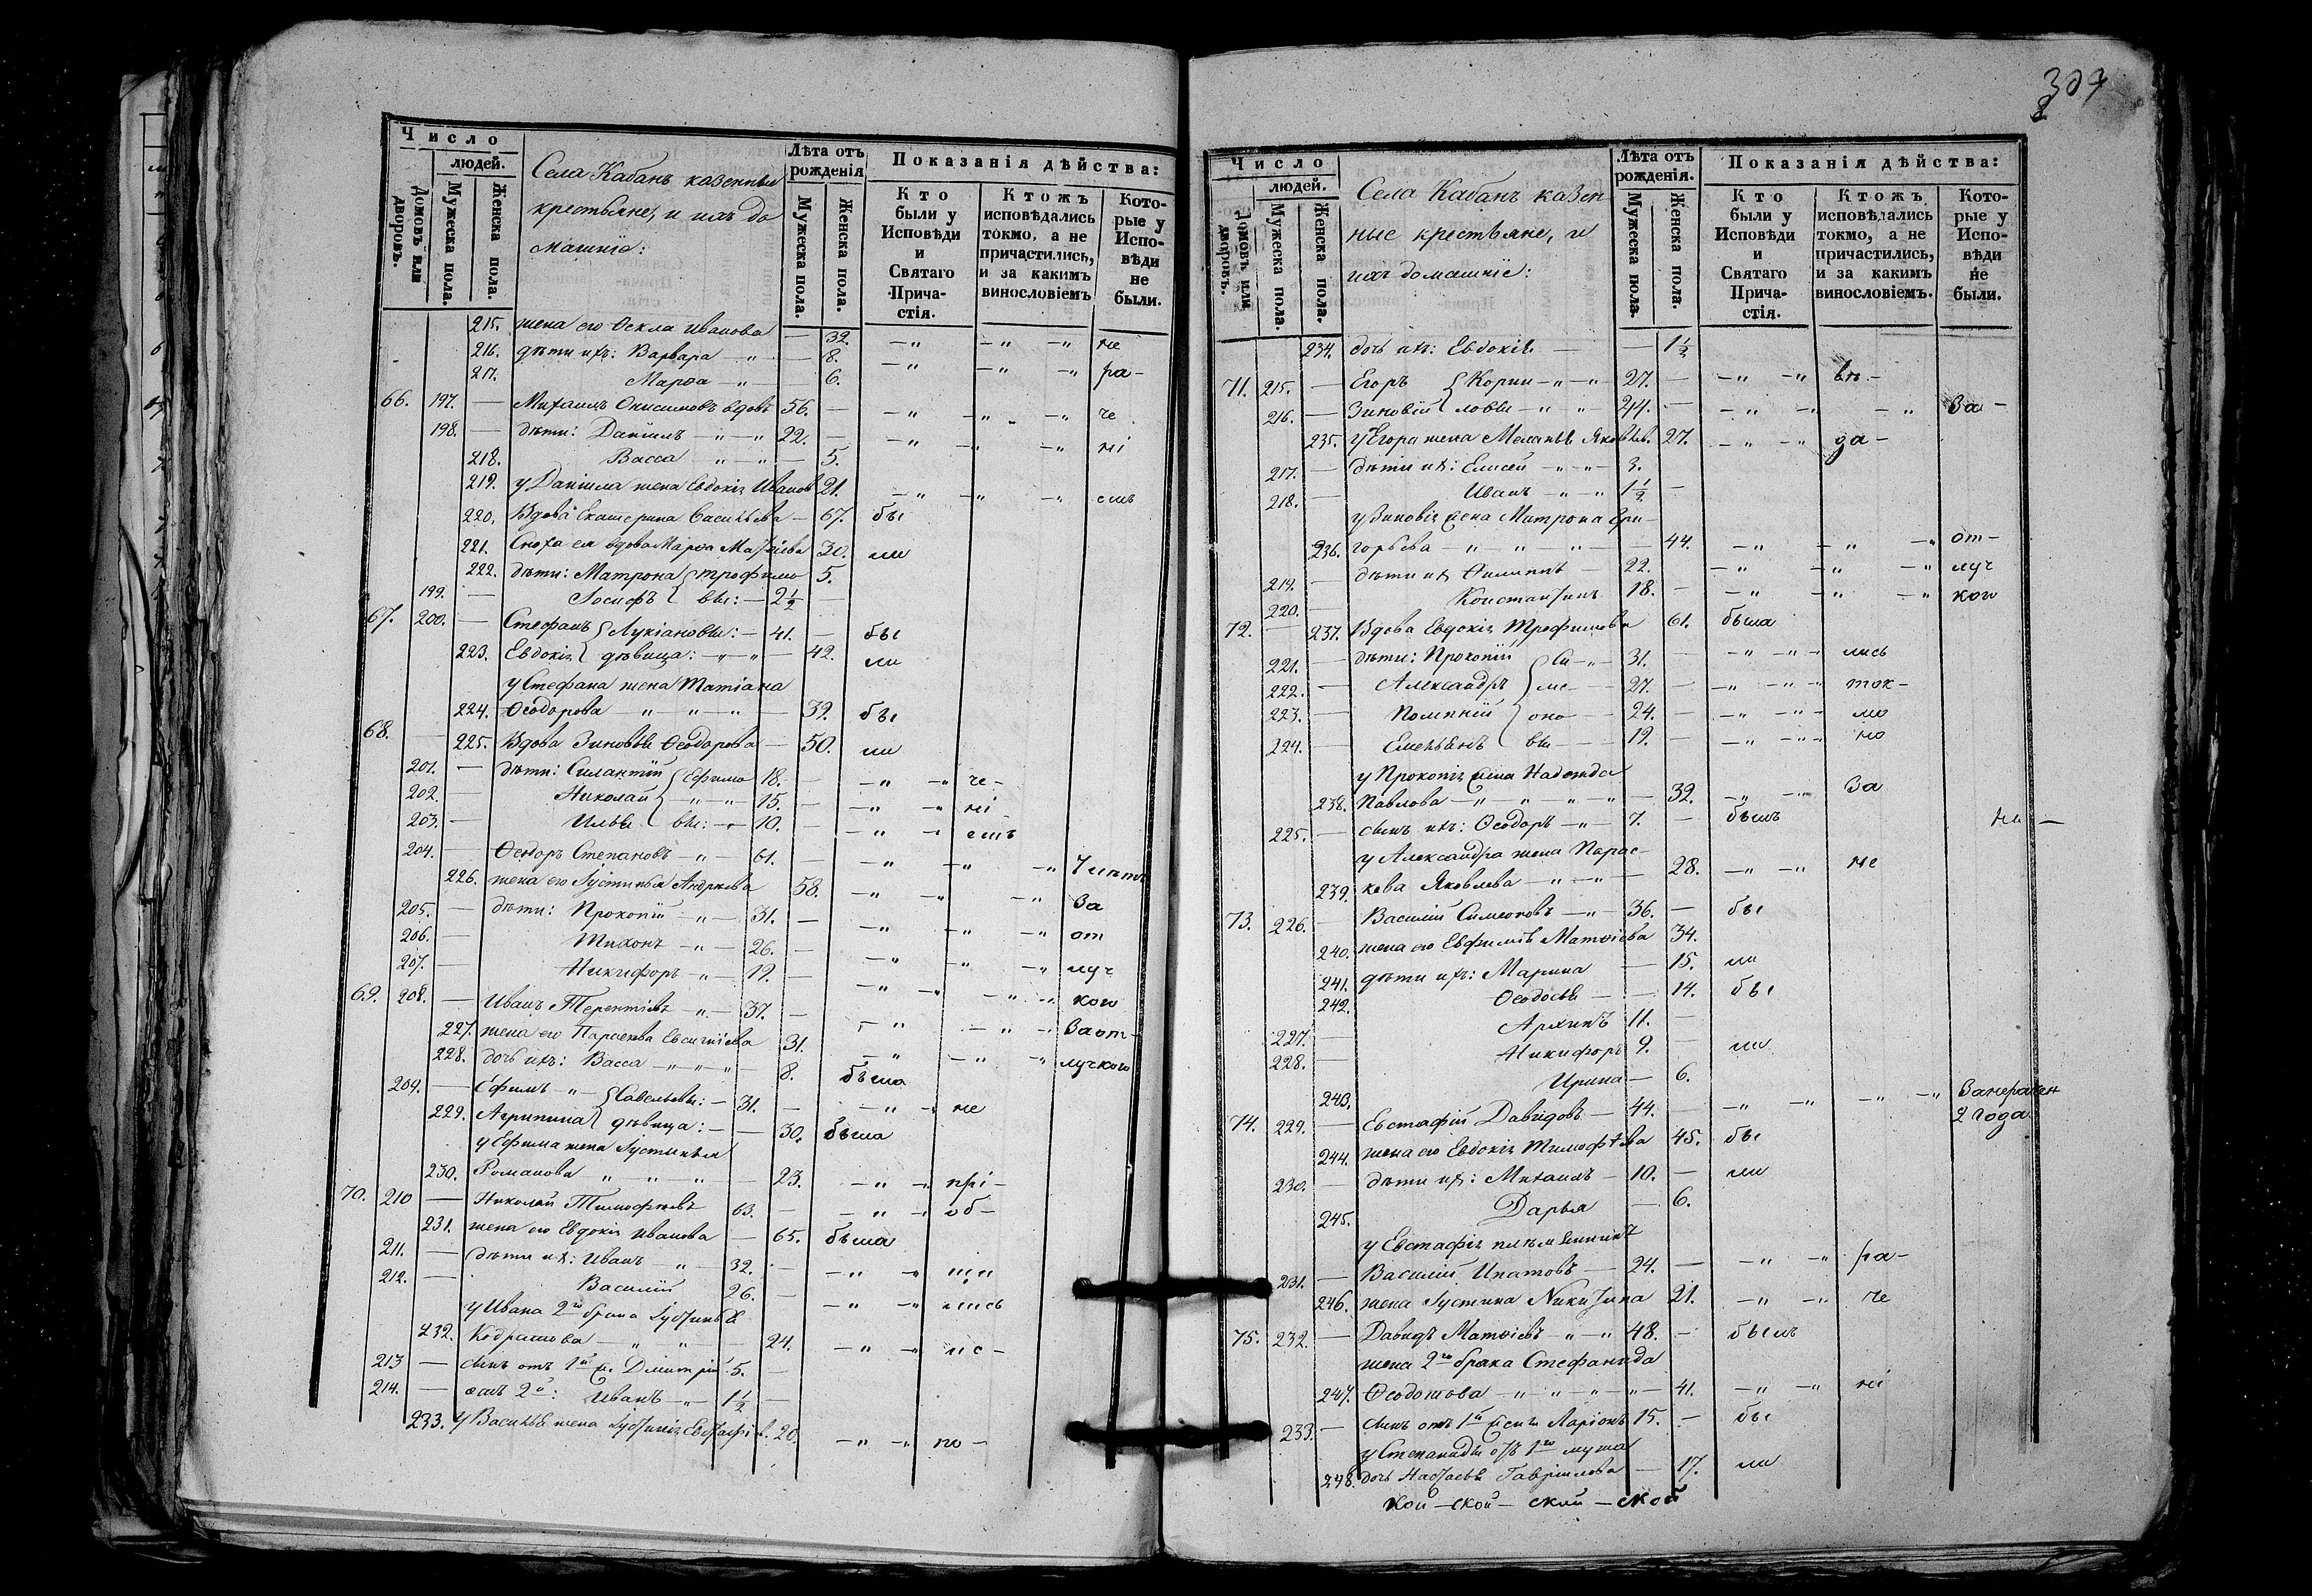 Число
людей.
Домовъ или дворовъ.
Мужеска пола.
Женска пола.
Села Кабанъ казенныя
крестьяне, и ихъ до
машніе:
Лѣта отъ рожденія
Мужеска пола.
Женска пола.
Показанія дѣйства:
Кто были у Исповѣди и Святаго Причастія.
Ктожъ исповѣдались токмо, а не причастились, и за какимъ винословіемъ
Которые у Исповѣди не были.
215. жена его Ѳекла Иванова — 32. —„ —„ —„ не
216. дѣти ихъ: Варвара —„— 8. —„ —„ —„ ра-
217. Марѳа —„— 6.
66. 197. — Михаилъ Онисимовъ вдовъ 56. — —„ —„ —„ че
198. — дѣти: Даніилъ —„—„ 22. — —„ —„ —„ ні
218. Васса —„—„— 5.
219. у Даніила жена Евдокія Иванов 21. —„ —„ —„ емъ
220. Вдова Екатерина Васильева — 67. бы
221. Сноха ея вдова Марѳа Матѳіева 30. ли
222. дѣти: Матрона { Трофимо 5.
199. — Іосифъ { вы: — 2½ —
67. 200. — Стефанъ { Лукіановы: — 41. — бы
223. Евдокія { дѣвица: —„—„— 42. ли
у Стефана жена Татіана
224. Ѳеодорова „ —„ —„ — 39. бы
68. — 225. Вдова Зиновья Ѳеодорова — 50. ли
201. — дѣти: Силантій { Ефимо 18. — —„ —„ че-
202. — Николай { —„—„ 15. — —„ —„ ні
203. — Илья { вы: —„ 10. —„ —„ емъ
204. — Ѳеодоръ Степановъ —„— 61. — —„ —„ —„
226. жена его Іустинья Андреева 58. —„ —„ —„ За
205. — дѣти: Прокопій —„— 31. — —„ —„ —„ от
206. — Тихонъ —„— 26. — —„ —„ —„ луч
207. — Никифоръ —„— 19. — —„ —„ —„ кою
69. 208. — Иванъ Терентіевъ —„— 37. — —„ —„ — Заот-
227. жена его Парасковья Евсигніева 31. —„ —„ —„ лучкою
228. дочь ихъ: Васса —„—„—„— 8. была
209. — Ефимъ —„— { Савельевы: — 31. — —„ —„ не
229. Агрипина { дѣвица: — — 30. была
у Ефима жена Іустинья
230. Романова „ „ „ — 23. —„ —„ прі-
70. 210 — Николай Тимофеевъ 63. — —„ —„ об-
231. жена его Евдокія Иванова — 65. была
211. — дѣти их: Иванъ —„— 32. — —„ —„ щи
212. — Василій 26. — —„ —„ лись
у Ивана 2го брака
232. Кодратова —„ „ — 24. —„ —„ ис-
213 — сынъ отъ 1й ж. Димитрій 5. —
214. — 2й: Иванъ —„— 1½ —
233. у Василья жена 20. —„ —„ по -
307
Число
людей.
Домовъ или дворовъ.
Мужеска пола.
Женска пола.
Села Кабанъ казен
ные крестьяне, и
ихъ домашніе:
Лѣта отъ рожденія.
Мужеска пола.
Женска пола.
Показанія дѣйства:
Кто были у Исповѣди и Святаго Причастія.
Ктожъ исповѣдались токмо, а не причастились, и за какимъ винословіемъ.
Которые у Исповѣди не были.
234. дочь ихъ: Евдокія — — 1½
71. 215. — Егоръ { Корни —„—„ 27. — —„ —„ вѣ.-
216. — Зиновій { ловы —„ „— 44. — —„ —„ —„ За -
235. у Егора жена Меланья Яковлев. 27. —„ —„ да-
217. — дѣти их: Елисей —„—„— 3.
218. — Иванъ —„—„ 1½ —
у Зиновія жена Матрона Гри-
236. горьева —„ „ „— — 44. —„ —„ —„ от-
219. — дѣти их Филиппъ — 22. —„ —„ —„ луч
220. — Константинъ 18. — —„ —„ —„ кою
72. — 237. Вдова Евдокія Трофимова 61. была
221. — дѣти: Прокопій { Си —„— 31. — —„ —„ —„ лись
222. — Александръ { ме- — 27. — —„ —„ —„ ток-
223. — { оно — — 24. — —„ —„ —„ мо
224. — Емельянъ { вы — — 19. — —„ —„ —„ но
у Прокопія жена Надежда
238. Павлова —„—„—„—„— 39. —„ —„ За
225. — сынъ ихъ: Ѳеодоръ —„— 7. — былъ
у Александра жена Парас-
239. кева Яковлева —„—„— 28. —„ —„ не
73. 226. — Василій Симеоновъ —„— 36. — бы
240. жена его Евфимія Матѳіева 34.
241. дѣти ихъ: Марина — 15. ли
242. Ѳеодосья — — 14. бы
227. — Архипъ 11. —
228. Никифоръ 9. — ли
243. Ирина — 6.
74. 229. — Евстафій Давидовъ — 44. — —„ —„ —„ —„
2 года
244. жена его Евдокія Тимофѣева 45. бы
230. — дѣти их: Михаилъ — 10. — ли
245. Дарья — 6.
у Евстафія племянникъ
231. — Василій Ипатовъ — 24. — —„ —„ ра-
246. жена Іустина Никитина 21. —„ —„ че
75. 232. — Давидъ Матѳіевъ —„—„ 48. — былъ
жена 2го брака Стефанида
247. Ѳеодотова —„—„—„—„— 41. —„ —„ ні
233. — сынъ отъ 1й жены Ларіонъ 15. — бы
у Степаниды отъ 1го мужа
248. дочь Настасья Гавриилова — 17. ли
кой — ской — ской — ской